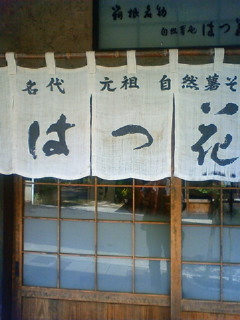 箱根名物
自然薯そば はつ花
名代 元祖 自然薯そ
はつ花